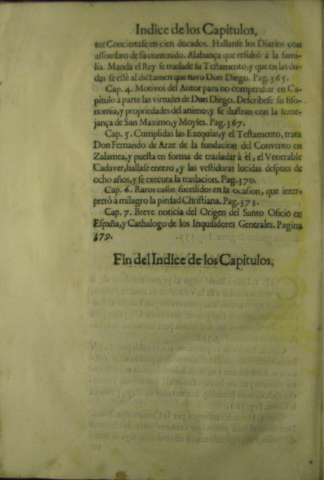 Indice de los Capitulos,
tor Conciertase en cien ducados. Hallanse los Diarios con
assombro de su contenido. Alabança que resultò à la fami-
lia. Manda el Rey se traslade su Testamento, y que en las du-
das se estè al dictamen que tuvo Don Diego. Pag. 365.
Cap. 4. Motivos del Autor para no comprobar en Ca-
pitulo à parte las virtudes de Don Diego. Descrivese su fiso-
nomia, y propriedades del animo, y se ilustran con la seme-
jança de San Maximo, y Moyses. Pag. 367.
Cap. 5. Cumplidas las Exequias, y el Testamento, trata
Don Fernando de Arze de la fundacion del Convento en
Zalamea, y puesta en forma de trasladar à èl, el Venerable
Cadaver, hallase entero, y las vestiduras lucidas despues de
ocho años, y se executa la traslacion. Pag. 370.
Cap. 6. Raros casos sucedidos en la ocasion, que inter-
pretò à milagro la piedad Christiana. Pag. 375.
Cap. 7. Breve noticia del Origen del Santo Oficio en
España, y Cathalogo de los Inquisidores Generales. Pagina
379.
Fin del Indice de los Capitulos,